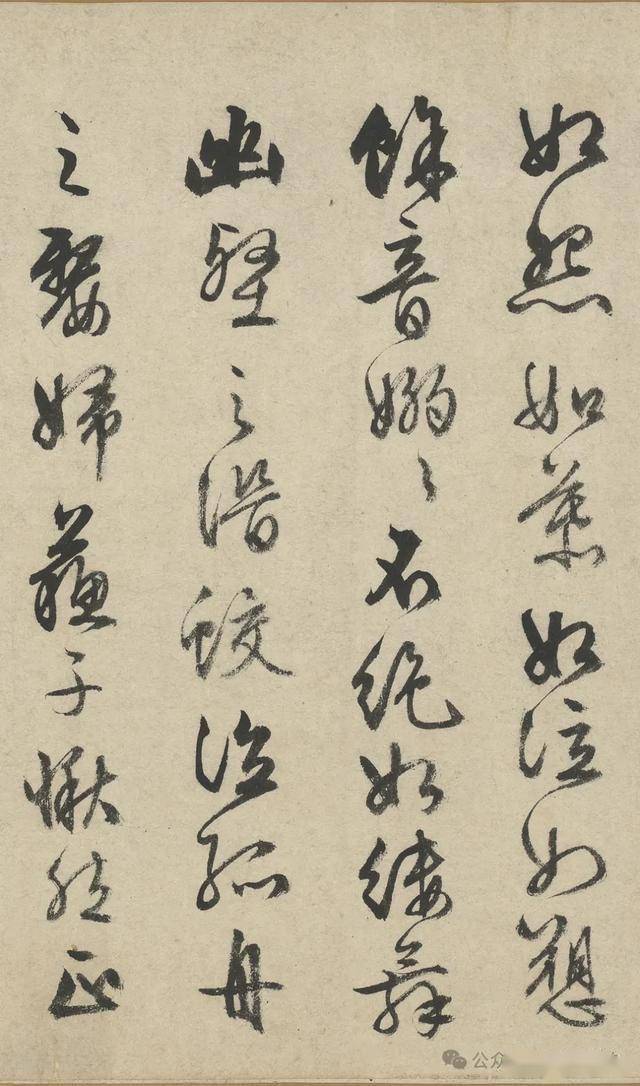 如怨如慕如泣如愬
餘音嫋〻不絶如縷舞
幽壑之潛蛟泣孤舟
之嫠婦蘇子愀然正
公众